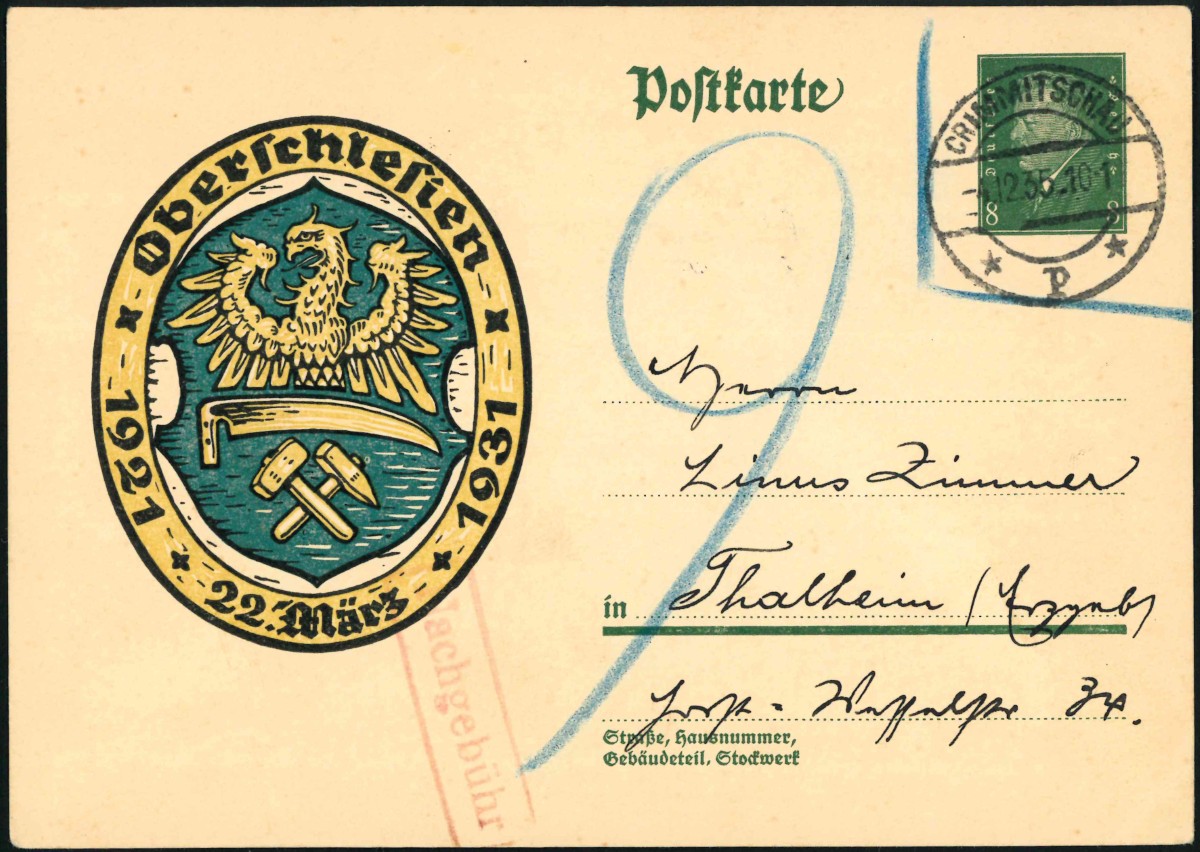 Postkarte
Oberschlesien
1921 1931
22. März
Deut
8 8
CRIMMITSCHAU
12.35.10-1
p
9
Herrn
Linus Zimmer
in Thalheim (Erzgeb)
Horst-Wesselstr
Straße, Hausnummer,
Gebäudeteil, Stockwerk
Nachgebühr